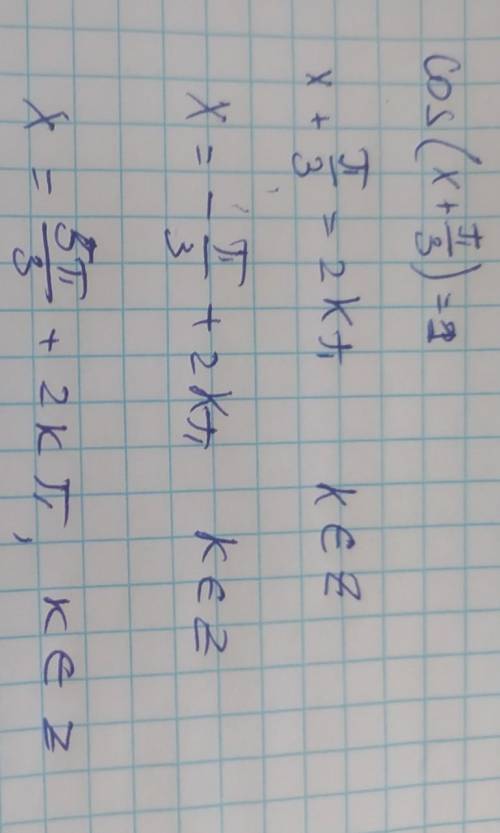 Cos(x + π/3) = 1
x + π/3 = 2kπ k ∈ Z
x = -π/3 + 2kπ k ∈ Z
x = 5π/3 + 2kπ, k ∈ Z